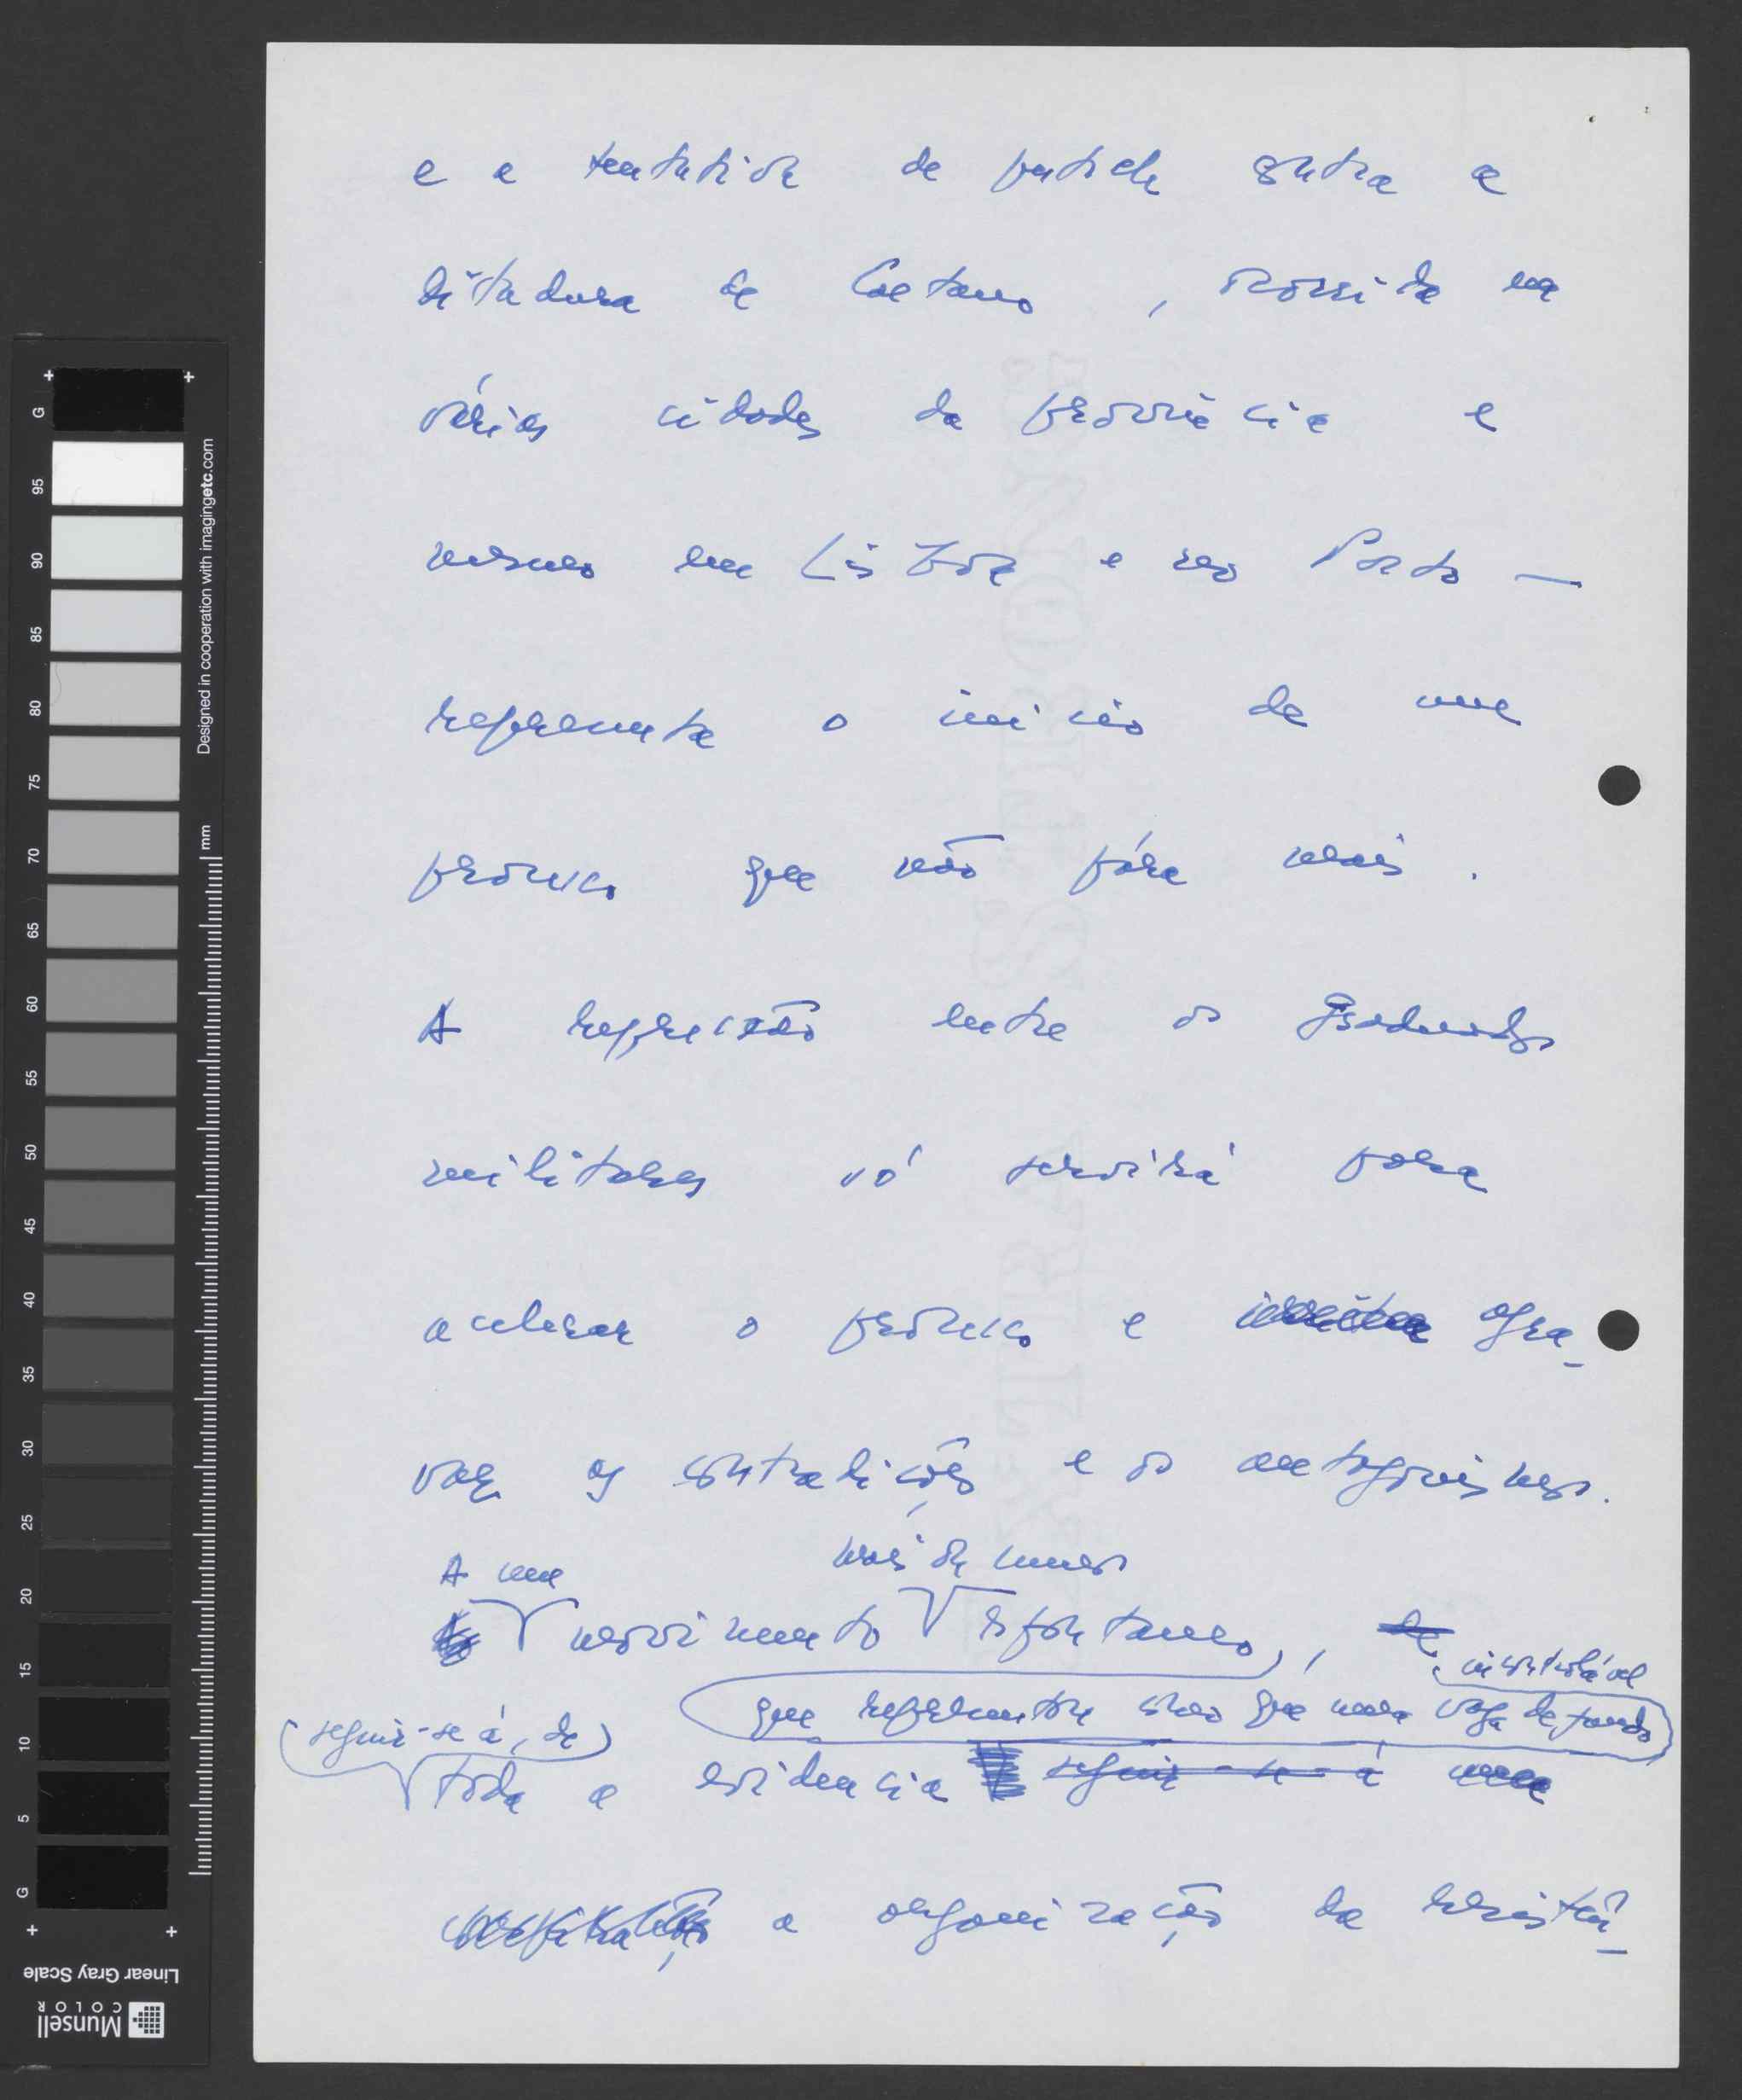 e a tentativa de putsch contra a
ditadura de Caetano, ocorrida na
várias cidades da província e
mesmo em Lisboa e no Porto —
representa o início de um
processo que não pára mais.
A repressão entre os graduados
militares só servirá para
acelerar o processo e agra-
var as contradições e os antagonismos.
A um mais ou menos
movimento espontaneo, de incontrolável
que representou mais que uma vaga de fundo
seguir-se á, de
toda a evidencia seguir-se-á uma
a organização da resistên-
Designed in cooperation with imagingetc.com
mm
G 95 90 85 80 75 70 65 60 55 50 45 40 35 30 25 20 15 10 5 G
Linear Gray Scale
Munsell
COLOR